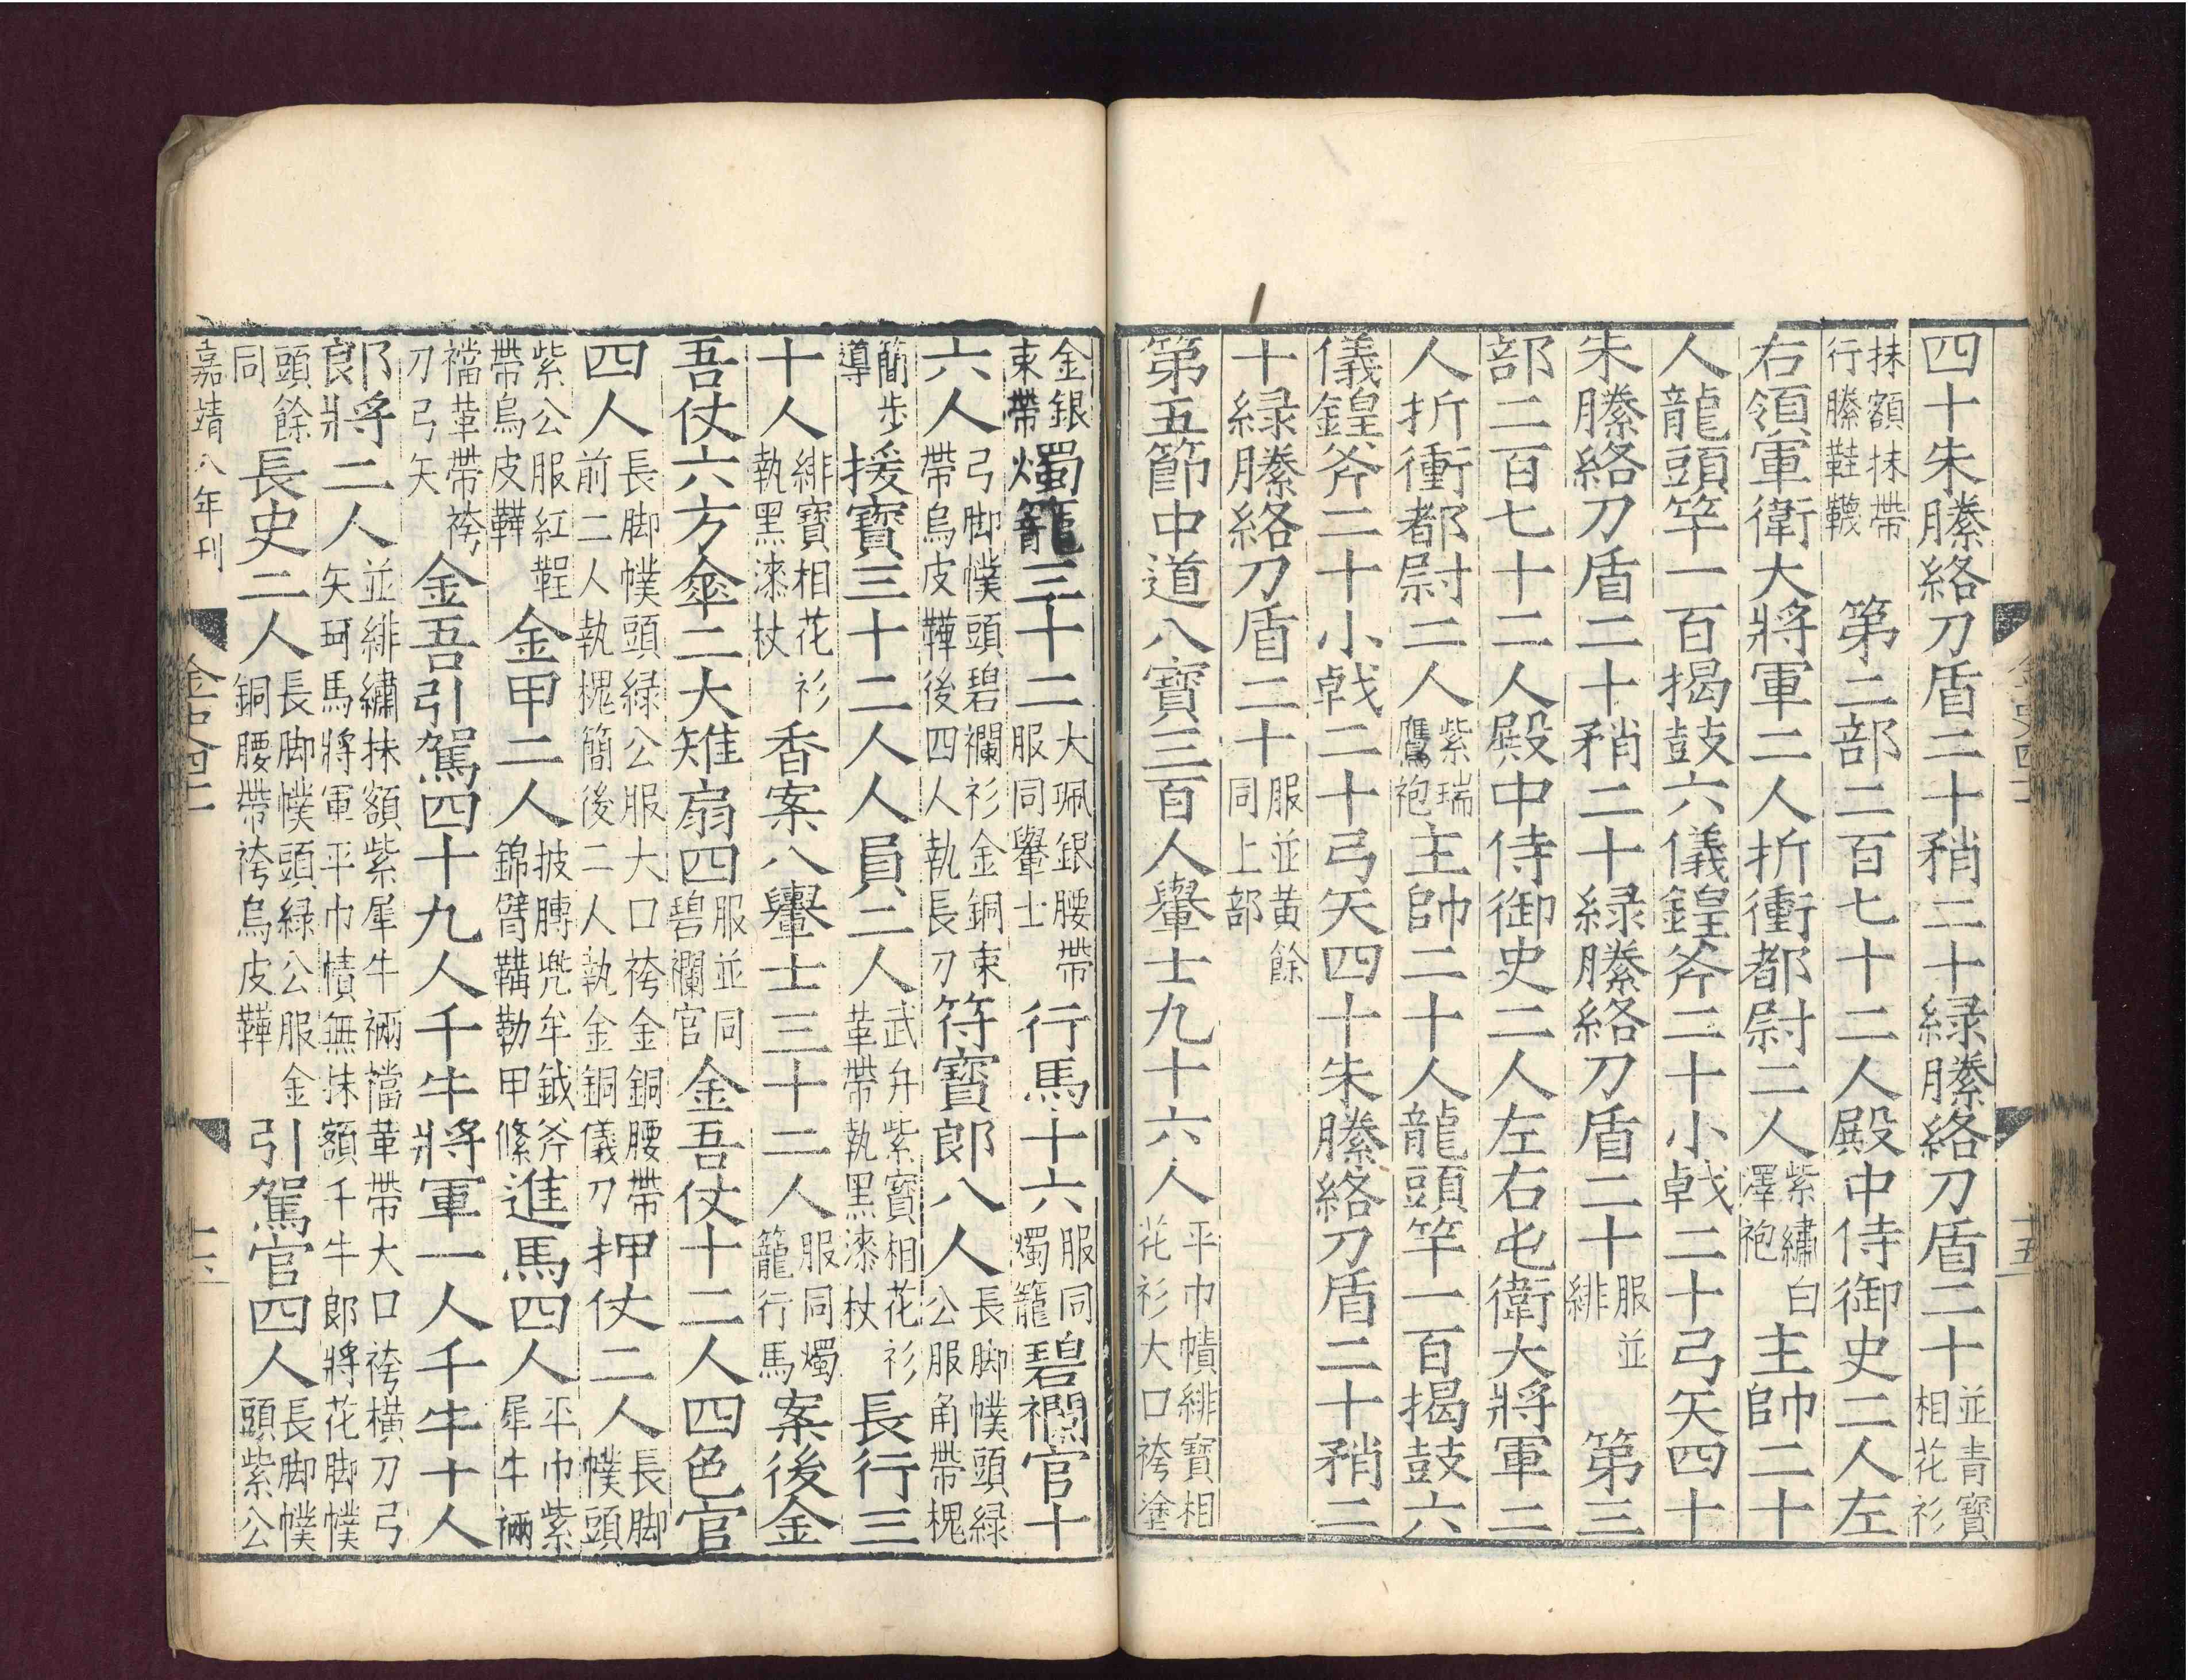 四十朱縢絡刀盾二十矟二十緑縢絡刀盾二十並青寶相花衫
抹額抹帶行縢鞋韈第二部二百七十二人殿中侍御史二人左
右領軍衛大將軍二人折衝都尉二人紫繡白澤袍主帥二十
人龍頭竿一百揭鼓六儀鍠斧二十小戟二十弓矢四十
朱縢絡刀盾二十矟二十緑縢絡刀盾二十服並緋第三
部二百七十二人殿中侍御史二人左右屯衛大將軍二
人折衝都尉二人紫瑞鷹袍主帥二十人龍頭竿一百揭鼓六
儀鍠斧二十小戟二十弓矢四十朱縢絡刀盾二十矟二
十緑縢絡刀盾二十服並黃餘同上部
第五節中道八寶三百人轝士九十六人平巾幘緋寶相花衫大口袴塗
金銀束帶燭籠三十二大珮銀腰帶服同轝士行馬十六服同燭籠碧襴官十
六人弓脚幞頭碧襴衫金銅束帶烏皮鞾後四人執長刀符寶郎八人長脚幞頭緑公服角帶槐
簡步導援寶三十二人人員二人武弁紫寶相花衫革帶執黑漆杖長行三
十人緋寶相花衫執黑漆杖香案八轝士三十二人服同燭籠行馬案後金
吾仗六方傘二大雉扇四服並同碧襴官金吾仗十二人四色官
四人長脚幞頭緑公服大口袴金銅腰帶前二人執槐簡後二人執金銅儀刀押仗二人長脚幞頭
紫公服紅鞓帶烏皮鞾金甲二人披膊兜牟鉞斧錦臂鞲勒甲絛進馬四人平巾紫犀牛裲
襠革帶袴刀弓矢金吾引駕四十九人千牛將軍一人千牛十人
郎將二人並緋繡抹額紫犀牛裲襠革帶大口袴橫刀弓矢珂馬將軍平巾幘無抹額千牛郎將花脚幞
頭餘同長史二人長脚幞頭緑公服金銅腰帶袴烏皮鞾引駕官四人長脚幞頭紫公
嘉靖八年刊
金史四十二
十六